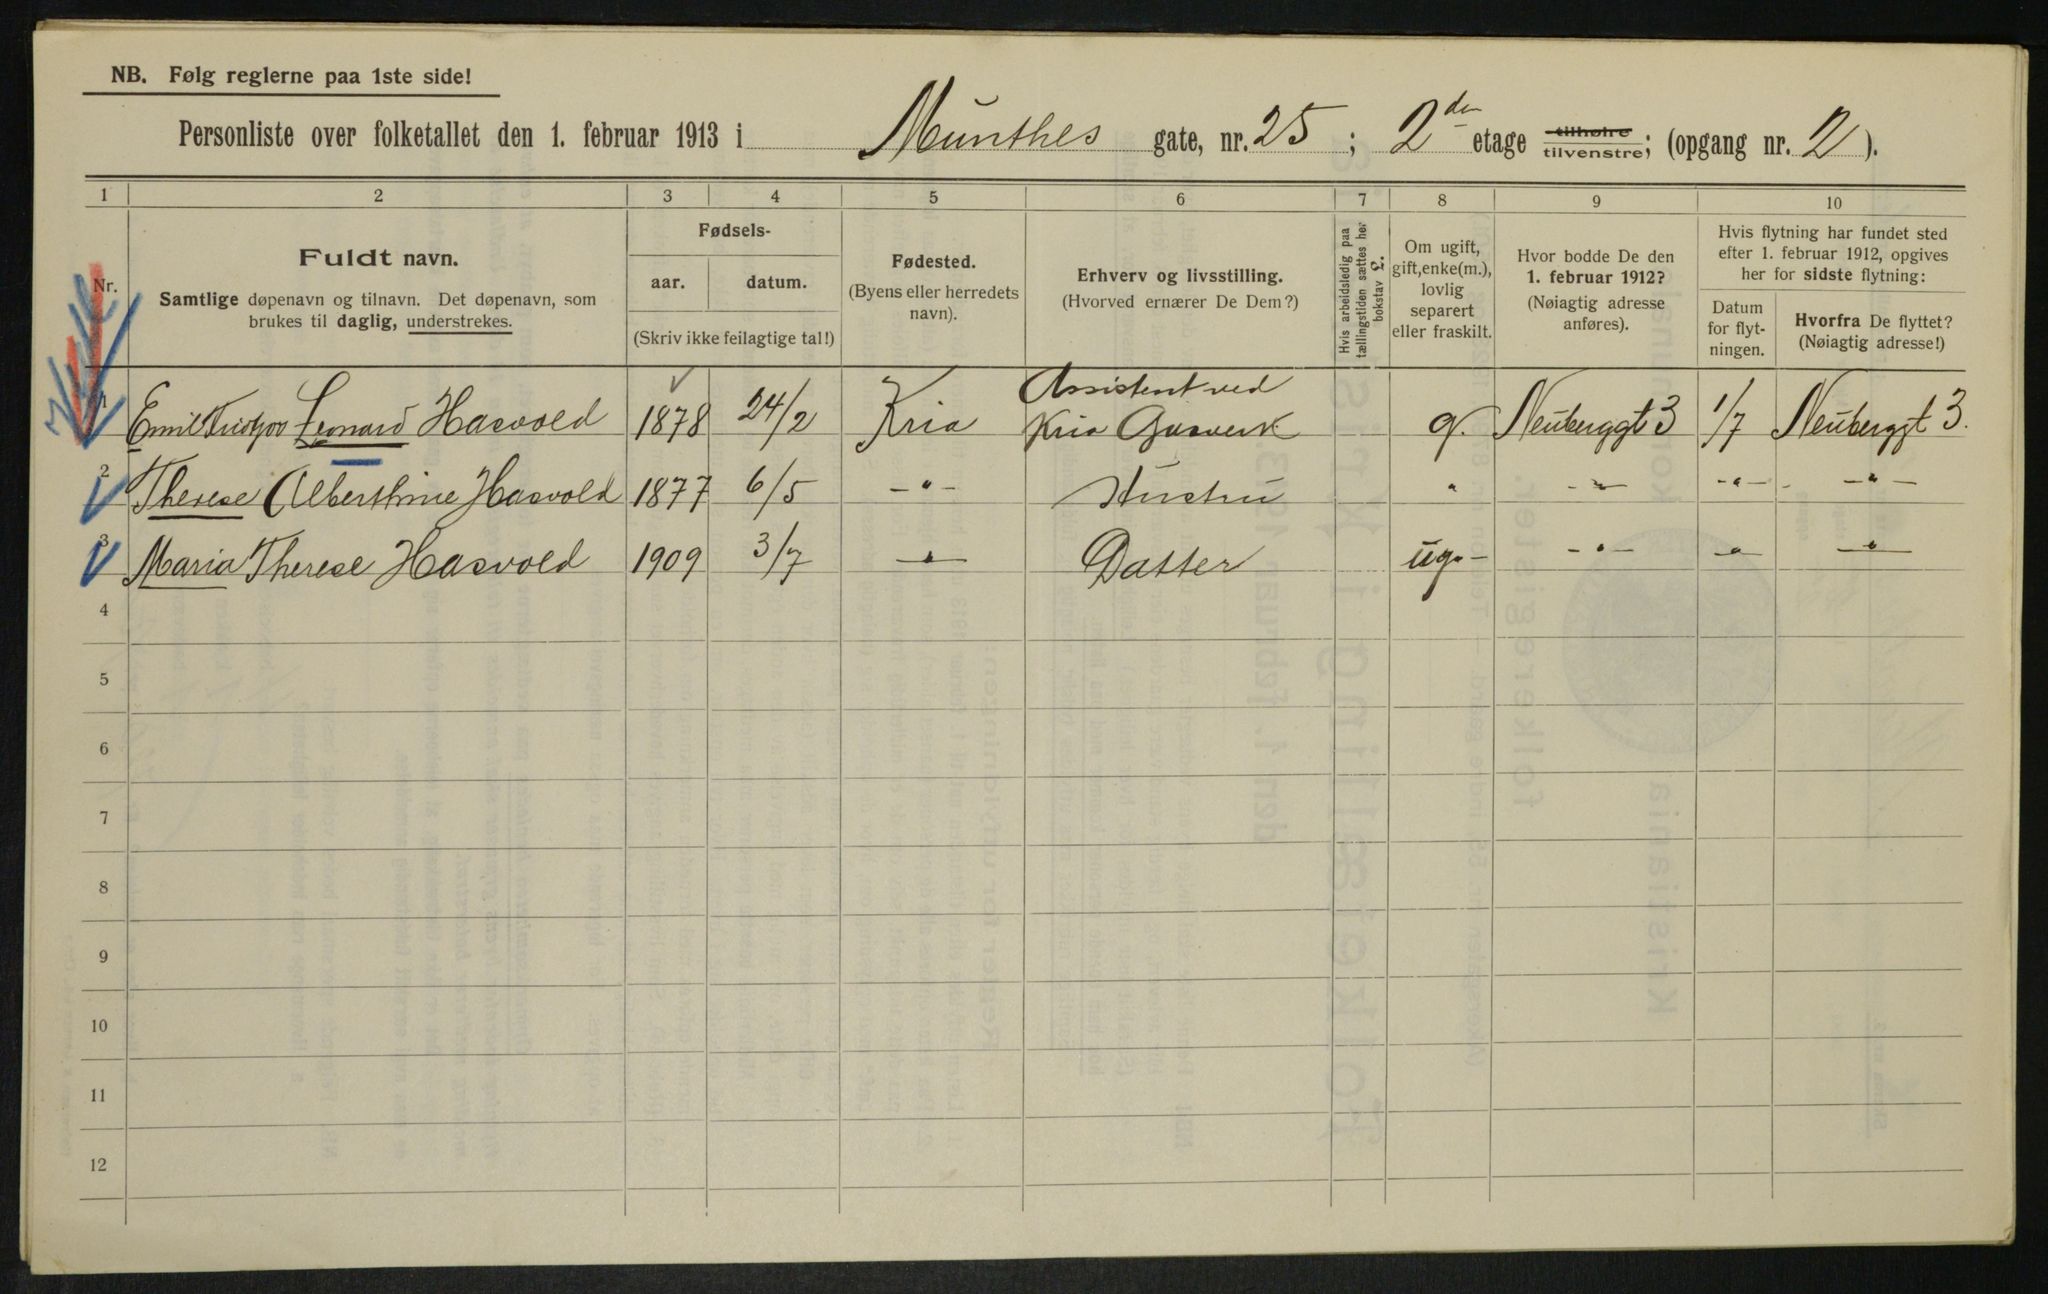 NB. Følg reglerne paa 1ste side!
Personliste over folketallet den 1. februar 1913 i Munthes gate, nr. 25 ; 2den etage tilhøire tilvenstre; (opgang nr. 2 ).
1 2 3 4 5 6 7 8 9 10
Nr.
Fuldt navn.
Samtlige døpenavn og tilnavn. Det døpenavn, som
brukes til daglig, understrekes.
Fødsels-
aar. datum.
(Skriv ikke feilagtige tal!)
Fødested.
(Byens eller herredets
navn).
Erhverv og livsstilling.
(Hvorved ernærer De Dem?)
Hvis arbeidsledig paa
tællingstiden sættes her
bokstav L.
Om ugift,
gift, enke(m.),
lovlig
separert
eller fraskilt.
Hvor bodde De den
1. februar 1912?
(Nøiagtig adresse
anføres).
Hvis flytning har fundet sted
efter 1. februar 1912, opgives
her for sidste flytning:
Datum
for flyt-
ningen.
Hvorfra De flyttet?
(Nøiagtig adresse!)
1 Emil Leonard Hasvold 1878 24/2 Kria Assistent ved
Kria Gasverk g. Neuberggt 3 1/7 Neuberggt 3.
2 Therese Alberthine Hasvold 1877 6/5 -"- Hustru " -"- -"- -"-
3 Maria Therese Hasvold 1909 3/7 -"- Datter ug. -"- -"- -"-
4
5
6
7
8
9
10
11
12